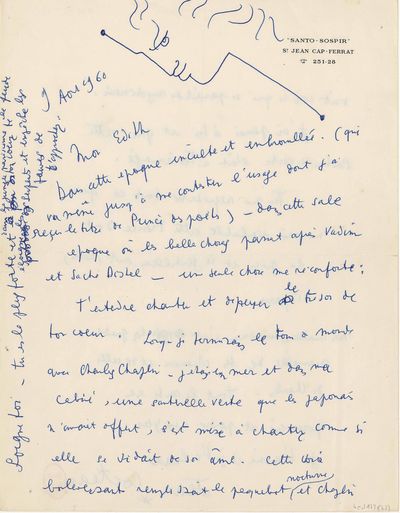 "SANTO-SOSPIR"
St JEAN CAP-FERRAT
251-26
Août 1960
Mon Edith
Dans cette epoque inculte et embrouillée. (qui
va même jusqu'à me contester l'usage dont j'ai
reçu le titre de Prince des poètes) – dans cette sale
epoque où les belles choses passent après Vadim
et Sacha Distel — une seule chose me reconforte :
t'entendre chanter et depenser le tresor de
ton coeur. Lorsque je terminais le tour du monde
avec Charley Chaplin – j'etais en mer et dans ma
cabine, une sauterelle verte que les japonais
m'avait offert, s'est mise à chanter comme si
elle se vidait de son âme. Cette voix
nocturne
bouleversante remplissait le paquebot, et Chaplin
Soigne toi – tu es la plus forte et